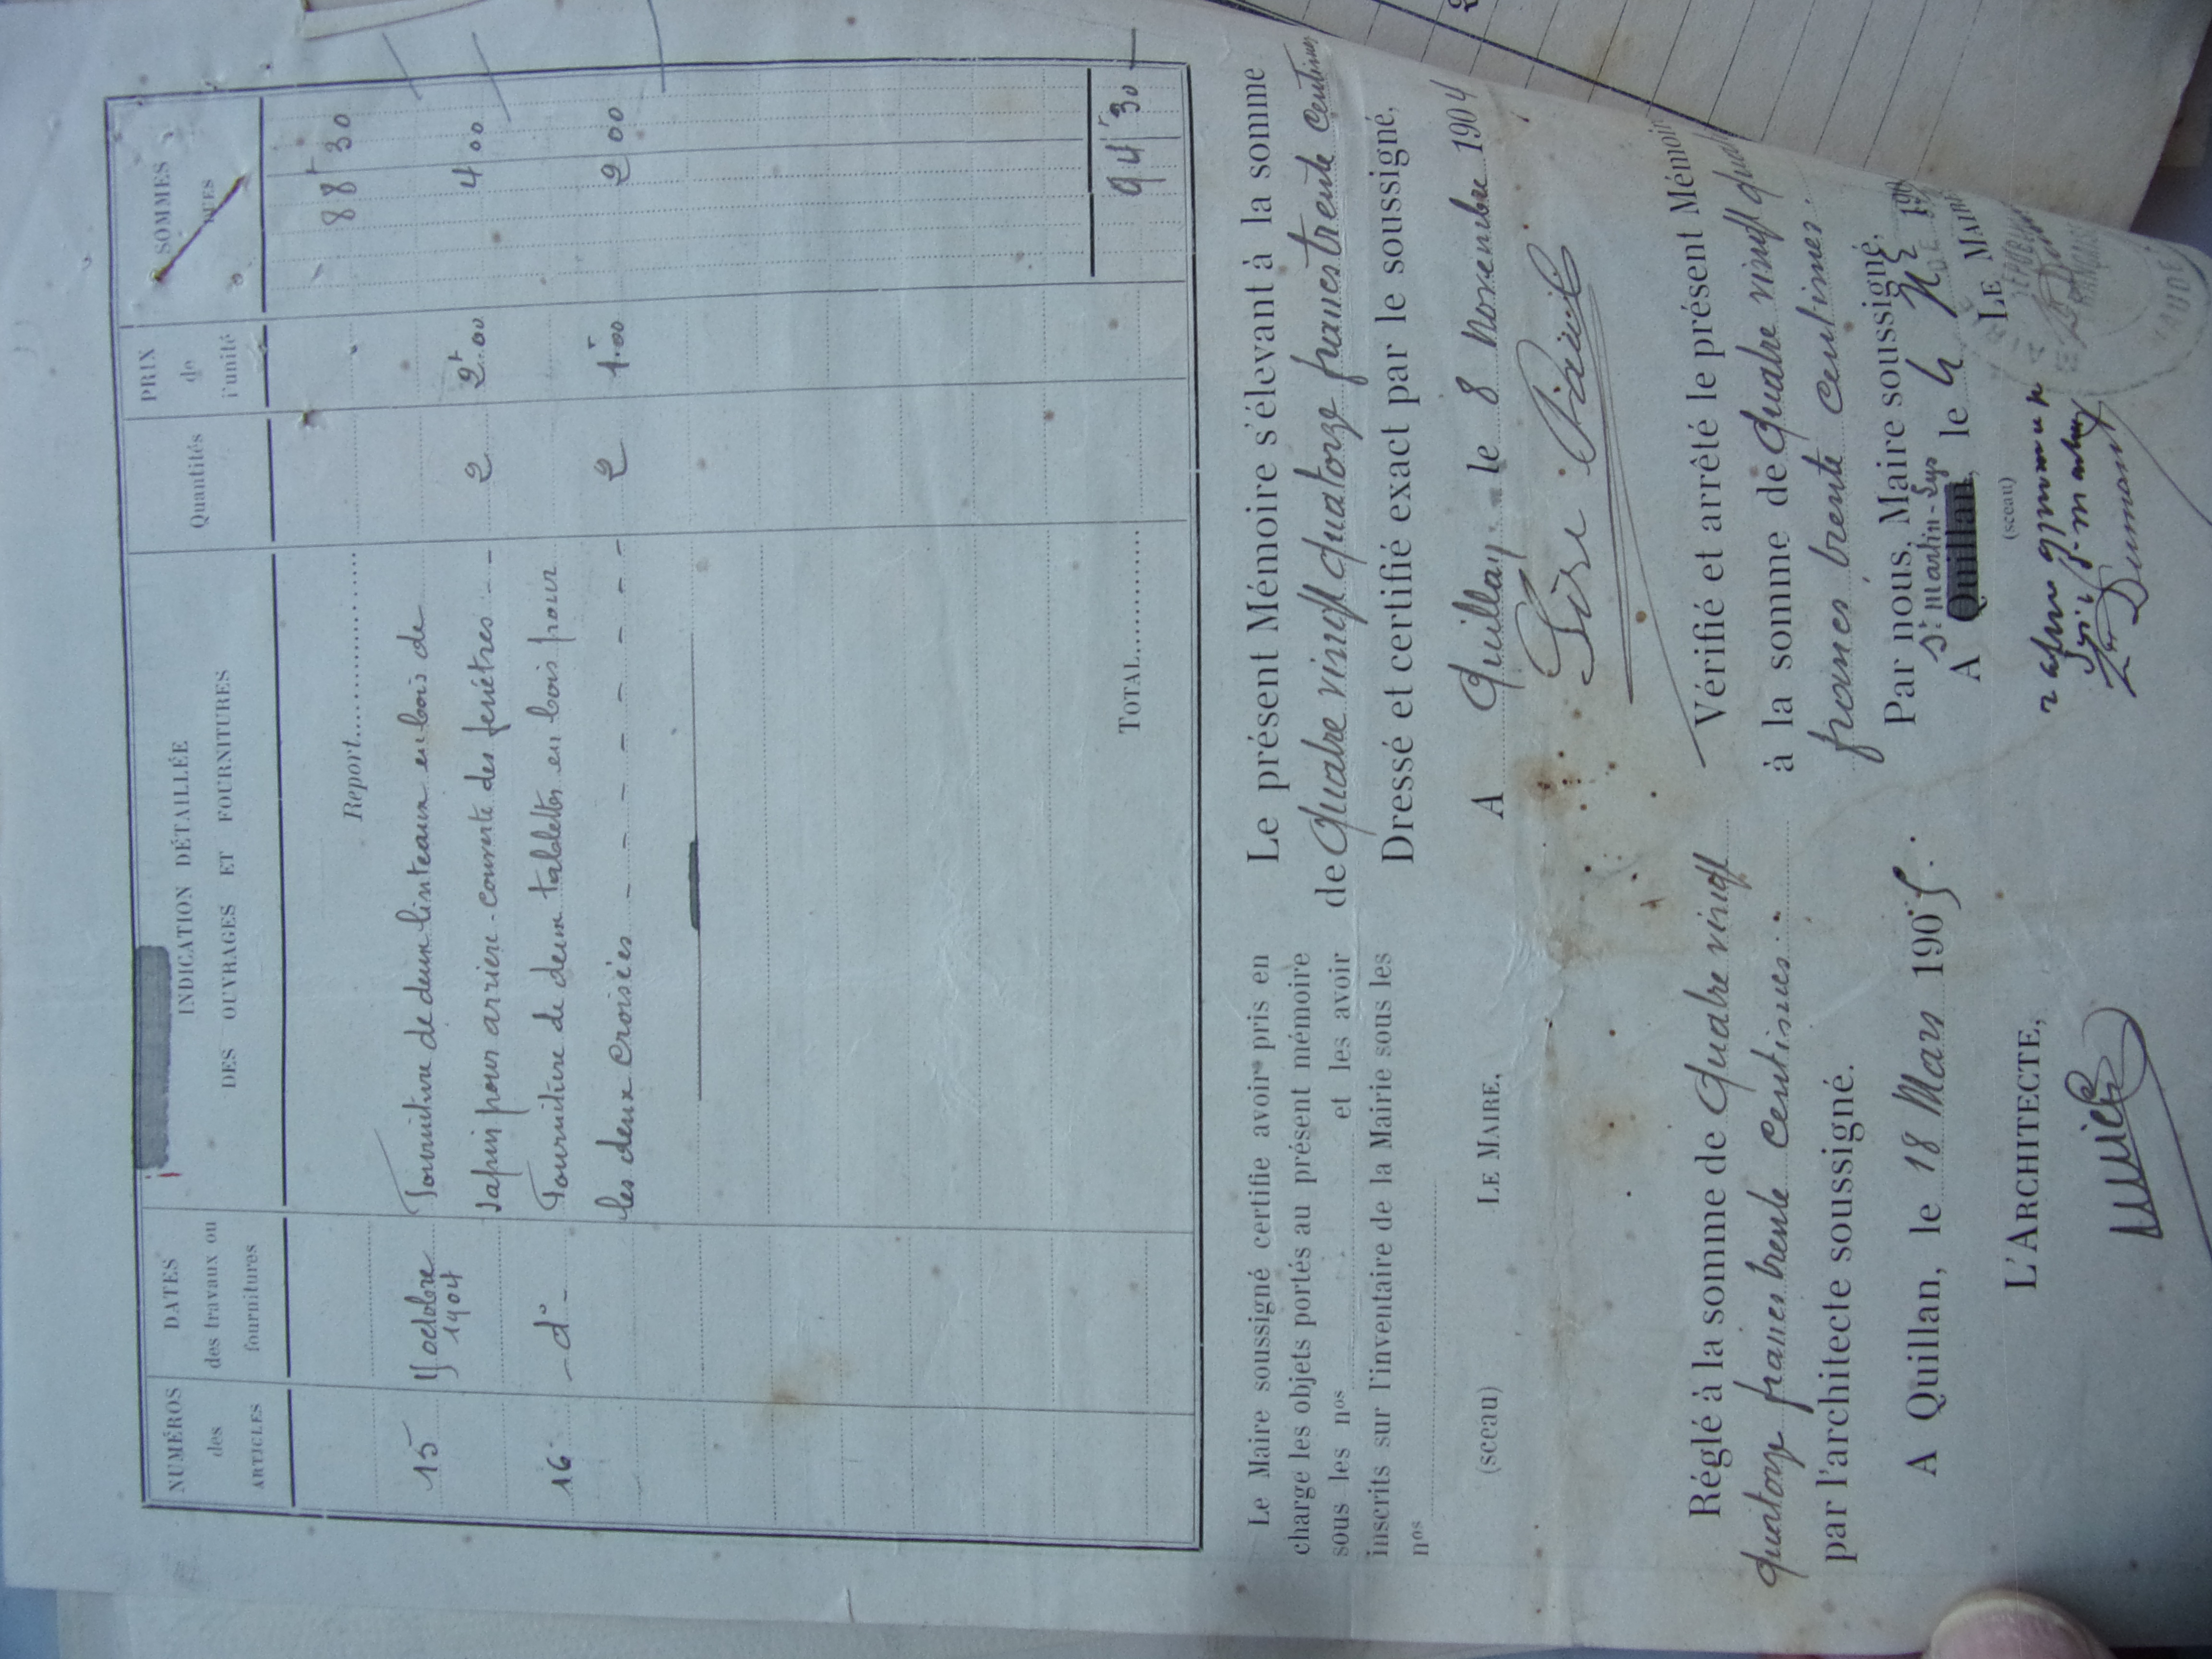 NUMÉROS des ARTICLES
DATES des travaux ou fournitures
INDICATION DÉTAILLÉE
DES OUVRAGES ET FOURNITURES
Quantités
PRIX de l'unité
SOMMES DUES
Report.................... 88f 30
15 octobre Fourniture de deux linteaux en bois de
1904
sapin pour arrière-couverte des fenêtres - - 2 2f.00 4 00
16 - d° - Fourniture de deux tablettes en bois pour
les deux croisées - - - - - - - - 2 1f.00 2 00
TOTAL............. 94f 30
Le Maire soussigné certifie avoir pris en
charge les objets portés au présent mémoire
sous les nos et les avoir
inscrits sur l'inventaire de la Mairie sous les
nos
(sceau) LE MAIRE,
Le présent Mémoire s'élevant à la somme
de Quatre vingt quatorze francs trente centimes
Dressé et certifié exact par le soussigné,
A Quillan le 8 Novembre 1904
Sire Paul
Réglé à la somme de Quatre vingt
quatorze francs trente centimes
par l'architecte soussigné.
A Quillan, le 18 Mars 1905.
L'ARCHITECTE,
Vérifié et arrêté le présent Mémoire
à la somme de Quatre vingt
francs trente centimes.
Par nous, Maire soussigné,
St Martin-Lys
A Quillan, le 190
(sceau) LE MAIRE
Dumont
MAIRIE DE
FRANÇAISE
AUDE